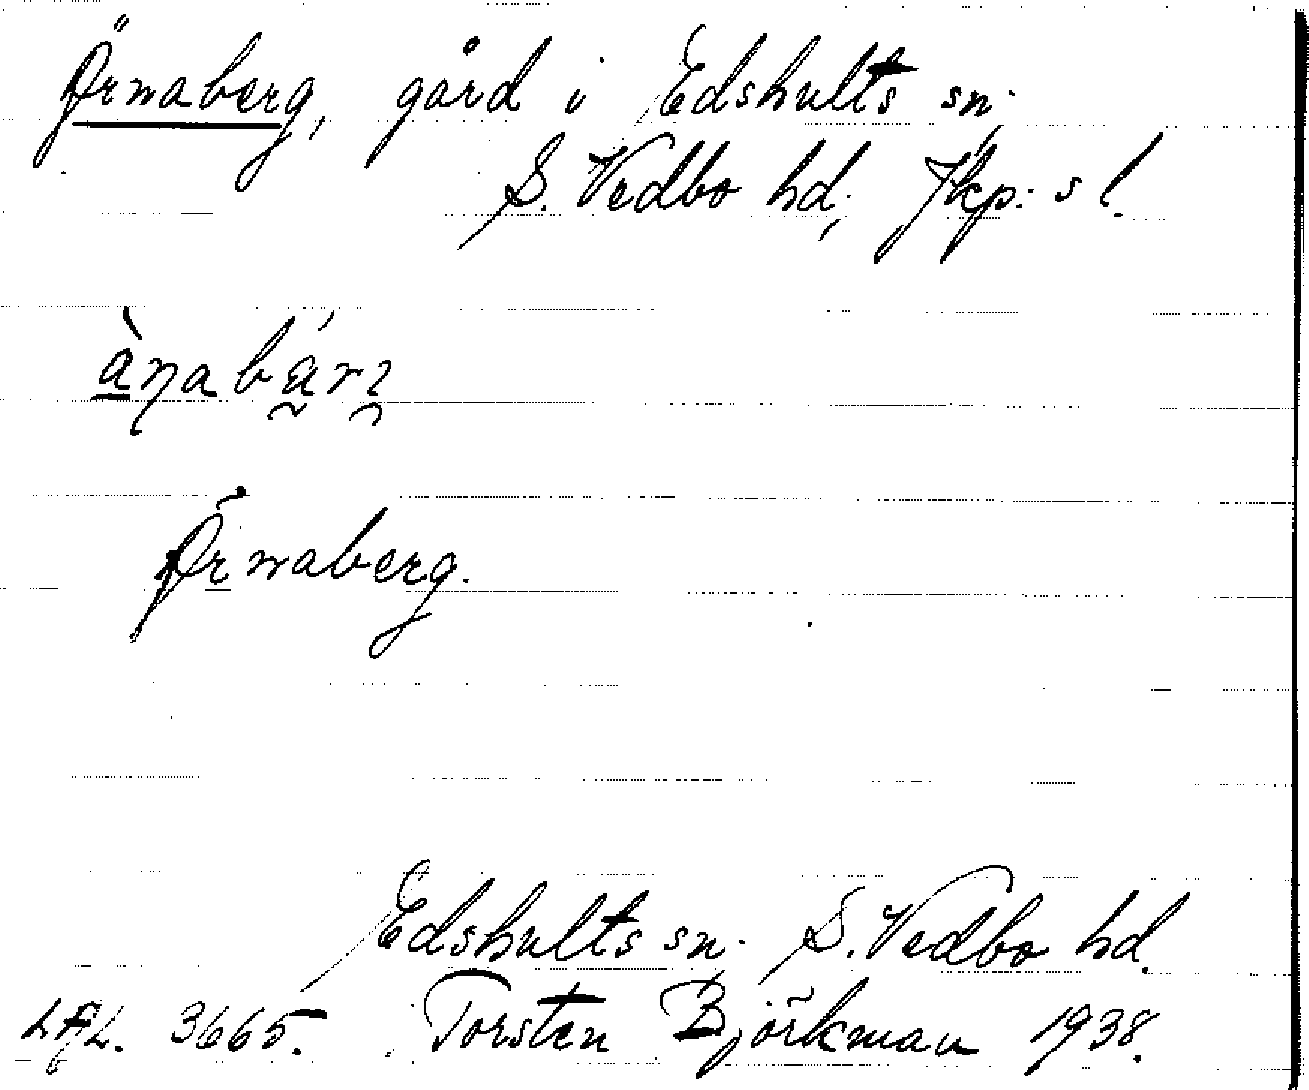 Örnaberg, gård i Edshults sn.
S. Vedbo hd, Jkp:s l.
Örnaberg.
Edshults sn. S. Vedbo hd.
LAL. 3665. Torsten Björkman 1938.